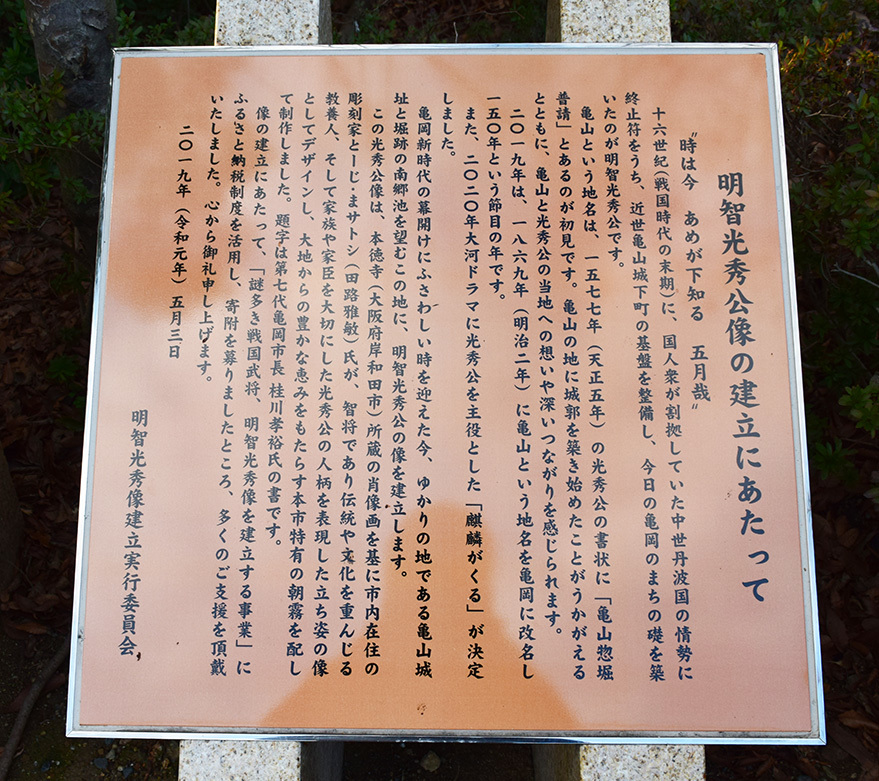 明智光秀公像の建立にあたって
“時は今　あめが下知る　五月哉”
十六世紀(戦国時代の末期)に、国人衆が割拠していた中世丹波国の情勢に
終止符をうち、近世亀山城下町の基盤を整備し、今日の亀岡のまちの礎を築
いたのが明智光秀公です。
亀山という地名は、一五七七年（天正五年）の光秀公の書状に「亀山惣堀
普請」とあるのが初見です。亀山の地に城郭を築き始めたことがうかがえる
とともに、亀山と光秀公の当地への想いや深いつながりを感じられます。
二〇一九年は、一八六九年（明治二年）に亀山という地名を亀岡に改名し
一五〇年という節目の年です。
また、二〇二〇年大河ドラマに光秀公を主役とした「麒麟がくる」が決定
しました。
亀岡新時代の幕開けにふさわしい時を迎えた今、ゆかりの地である亀山城
址と堀跡の南郷池を望むこの地に、明智光秀公の像を建立します。
この光秀公像は、本徳寺（大阪府岸和田市）所蔵の肖像画を基に市内在住の
彫刻家とーじ・まサトシ（田路雅敏）氏が、智将であり伝統や文化を重んじる
教養人、そして家族や家臣を大切にした光秀公の人柄を表現した立ち姿の像
としてデザインし、大地からの豊かな恵みをもたらす本市特有の朝霧を配し
て制作しました。題字は第七代亀岡市長 桂川孝裕氏の書です。
像の建立にあたって、「謎多き戦国武将、明智光秀像を建立する事業」に
ふるさと納税制度を活用し、寄附を募りましたところ、多くのご支援を頂戴
いたしました。心から御礼申し上げます。
二〇一九年（令和元年）五月三日
明智光秀像建立実行委員会